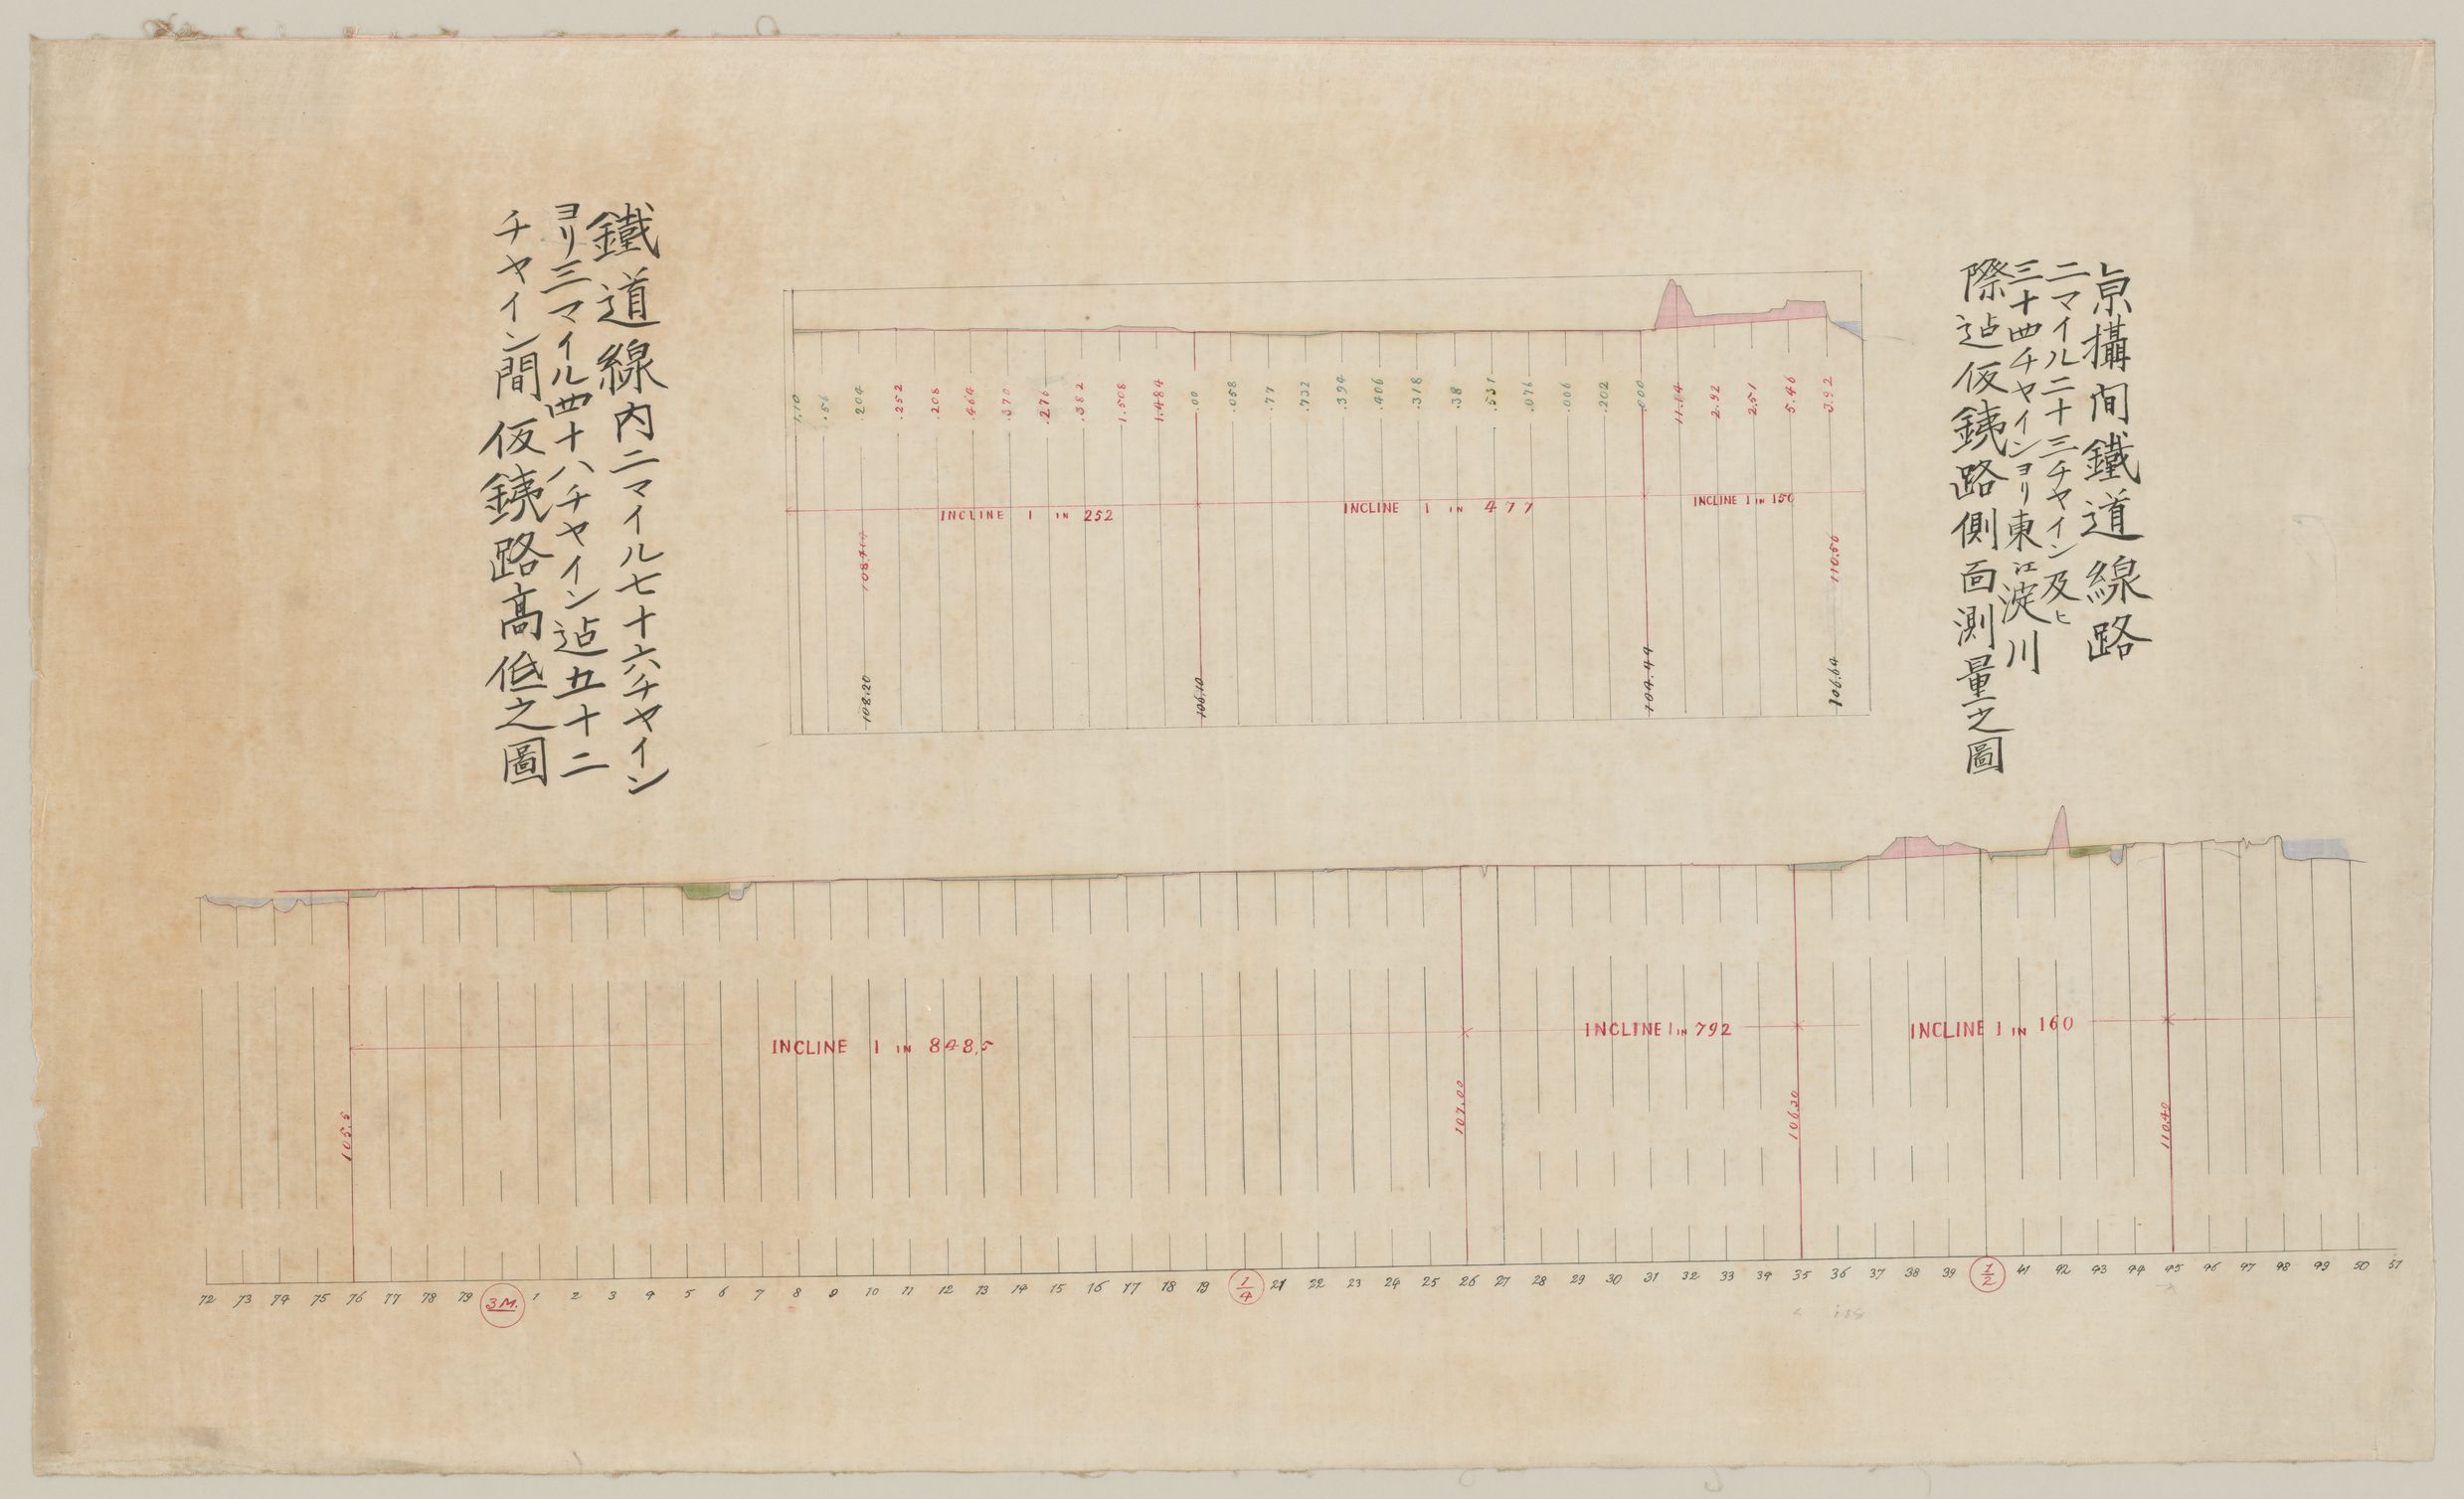 京攝間鐵道線路
二マイル二十三チヤイン及ヒ
三十四チヤインヨリ東江淀川
際迠仮銕路側面測量之圖
鐵道線内二マイル七十六チヤイン
ヨリ三マイル四十八チヤイン迠五十二
チヤイン間仮銕路高低之圖
1.10 .56 .204 .252 .208 .464 .370 .276 .382 1.508 1.484 .00 .058 .77 .732 .394 .406 .318 .38 .531 .076 .006 .202 .000 11.14 2.92 2.51 5.46 3.92
INCLINE 1 IN 252
INCLINE 1 IN 477
INCLINE 1 IN 150
110.56
108.20
106.10
104.44
106.64
INCLINE 1 IN 848.5
INCLINE 1 IN 792
INCLINE 1 IN 160
105.5
107.00
106.30
110.40
72 73 74 75 76 77 78 79 3M. 1 2 3 4 5 6 7 8 9 10 11 12 13 14 15 16 17 18 19 1/4 21 22 23 24 25 26 27 28 29 30 31 32 33 34 35 36 37 38 39 1/2 41 42 43 44 45 46 47 48 49 50 51